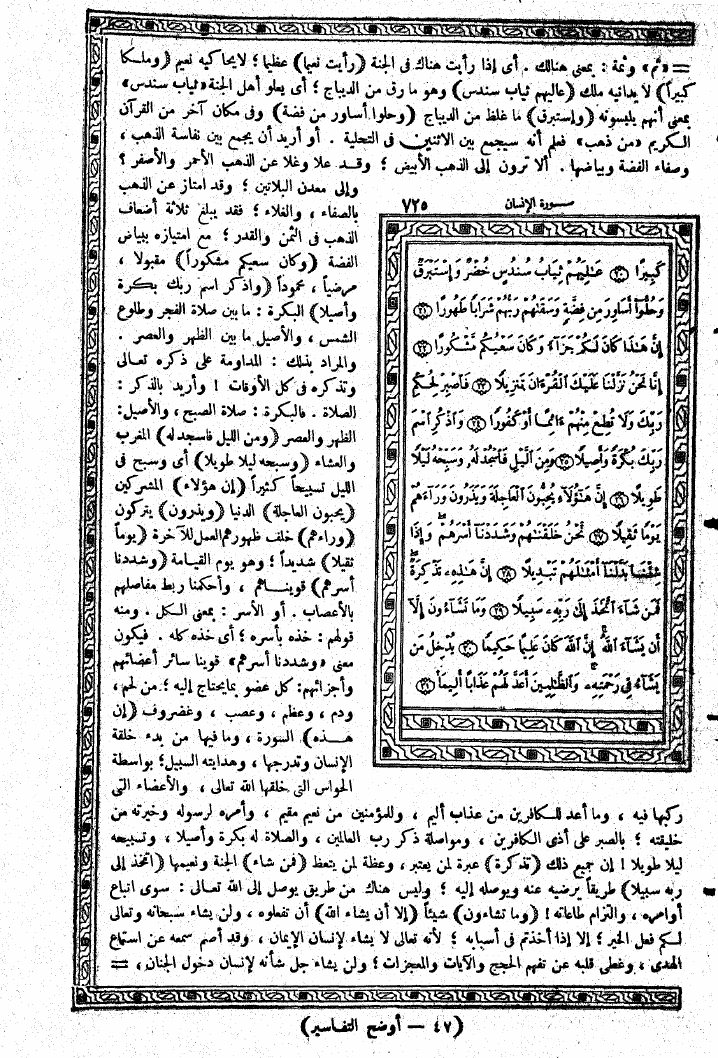 = «ثم» وثمة : بمعنى هنالك . أى إذا رأيت هناك فى الجنة (رأيت نعيما) عظيما ؛ لايحاكيه نعيم (وملكا
كبيراً) لا يدانيه ملك (عاليهم ثياب سندس) وهو مارق من الديباج ؛ أى يعلو أهل الجنة «ثياب سندس»
بمعنى أنهم يلبسونه (وإستبرق) ما غلظ من الديباج (وحلوا أساور من فضة) وفى مكان آخر من القرآن
الكريم «من ذهب» فعلم أنه سيجمع بين الاثنين فى التحلية . أو أريد أن يجمع بين نفاسة الذهب ،
وصفاء الفضة وبياضها . ألا ترون إلى الذهب الأبيض ؛ وقد علا وغلا عن الذهب الأحمر والأصفر ؟
وإلى معدن البلاتين ؛ وقد امتاز عن الذهب
بالصفاء ، والغلاء ؛ فقد يبلغ ثلاثة أضعاف
الذهب فى الثمن والقدر ؛ مع امتيازه ببياض
الفضة (وكان سعيكم مشكوراً) مقبولا ،
مرضياً ، محموداً (واذكر اسم ربك بكرة
وأصيلا) البكرة : ما بين صلاة الفجر وطلوع
الشمس ، والأصيل ما بين الظهر والعصر .
والمراد بذلك : المداومة على ذكره تعالى
وتذكره فى كل الأوقات ! وأريد بالذكر :
الصلاة . فالبكرة : صلاة الصبح ، والأصيل :
الظهر والعصر (ومن الليل فاسجد له) المغرب
والعشاء (وسبحه ليلا طويلا) أى وسبح فى
الليل تسبيحاً كثيراً (إن هؤلاء) المشركين
(يحبون العاجلة) الدنيا (ويذرون) يتركون
(وراءهم) خلف ظهورهم العمل للآخرة (يوماً
ثقيلا) شديداً ؛ وهو يوم القيامة (وشددنا
أسرهم) قويناهم ، وأحكمنا ربط مفاصلهم
بالأعصاب . أو الأسر : بمعنى الكل . ومنه
قولهم : خذه بأسره ؛ أى خذه كله . فيكون
معنى «وشددنا أسرهم» قوينا سائر أعضائهم
وأجزائهم: كل عضو بما يحتاج إليه ؛ من لحم ،
ودم ، وعظم ، وعصب ، وغضروف (إن
هذه) السورة ، وما فيها من بدء خلقة
الإنسان وتدرجها ، وهدايته السبيل ؛ بواسطة
الحواس التى خلقها الله تعالى ، والأعضاء التى
سورة الإنسان ٧٢٥
كَبِيرًا ٢٠ عَٰلِيَهُمْ ثِيَابُ سُندُسٍ خُضْرٌ وَإِسْتَبْرَقٌ
وَحُلُّوٓا۟ أَسَاوِرَ مِن فِضَّةٍ وَسَقَىٰهُمْ رَبُّهُمْ شَرَابًا طَهُورًا ٢١
إِنَّ هَٰذَا كَانَ لَكُمْ جَزَآءً وَكَانَ سَعْيُكُم مَّشْكُورًا ٢٢
إِنَّا نَحْنُ نَزَّلْنَا عَلَيْكَ ٱلْقُرْءَانَ تَنزِيلًا ٢٣ فَٱصْبِرْ لِحُكْمِ
رَبِّكَ وَلَا تُطِعْ مِنْهُمْ ءَاثِمًا أَوْ كَفُورًا ٢٤ وَٱذْكُرِ ٱسْمَ
رَبِّكَ بُكْرَةً وَأَصِيلًا ٢٥ وَمِنَ ٱلَّيْلِ فَٱسْجُدْ لَهُۥ وَسَبِّحْهُ لَيْلًا
طَوِيلًا ٢٦ إِنَّ هَٰٓؤُلَآءِ يُحِبُّونَ ٱلْعَاجِلَةَ وَيَذَرُونَ وَرَآءَهُمْ
يَوْمًا ثَقِيلًا ٢٧ نَّحْنُ خَلَقْنَٰهُمْ وَشَدَدْنَآ أَسْرَهُمْ وَإِذَا
شِئْنَا بَدَّلْنَآ أَمْثَٰلَهُمْ تَبْدِيلًا ٢٨ إِنَّ هَٰذِهِۦ تَذْكِرَةٌ
فَمَن شَآءَ ٱتَّخَذَ إِلَىٰ رَبِّهِۦ سَبِيلًا ٢٩ وَمَا تَشَآءُونَ إِلَّآ
أَن يَشَآءَ ٱللَّهُ إِنَّ ٱللَّهَ كَانَ عَلِيمًا حَكِيمًا ٣٠ يُدْخِلُ مَن
يَشَآءُ فِى رَحْمَتِهِۦ وَٱلظَّٰلِمِينَ أَعَدَّ لَهُمْ عَذَابًا أَلِيمًۢا ٣١
ركبها فيه ، وما أعد للكافرين من عذاب أليم ، وللمؤمنين من نعيم مقيم ، وأمره لرسوله وخيرته من
خليقته ؛ بالصبر على أذى الكافرين ، ومواصلة ذكر رب العالمين ، والصلاة له بكرة وأصيلا ، وتسبيحه
ليلا طويلا ! إن جميع ذلك (تذكرة) عبرة لمن يعتبر ، وعظة لمن يتعظ (فمن شاء) الجنة ونعيمها (اتخذ إلى
ربه سبيلا) طريقاً يرضيه عنه ويوصله إليه ؛ وليس هناك من طريق يوصل إلى الله تعالى : سوى اتباع
أوامره ، والتزام طاعاته ! (وما تشاءون) شيئاً (إلا أن يشاء الله) أن تفعلوه ، ولن يشاء سبحانه وتعالى
لكم فعل الخير ؛ إلا إذا أخذتم فى أسبابه ؛ لأنه تعالى لا يشاء لإنسان الإيمان ، وقد أصم سمعه عن استماع
الهدى ، وغطى قلبه عن تفهم الحجج والآيات والمعجزات ؛ ولن يشاء جل شأنه لإنسان دخول الجنان ، =
(٤٧ — أوضح التفاسير)